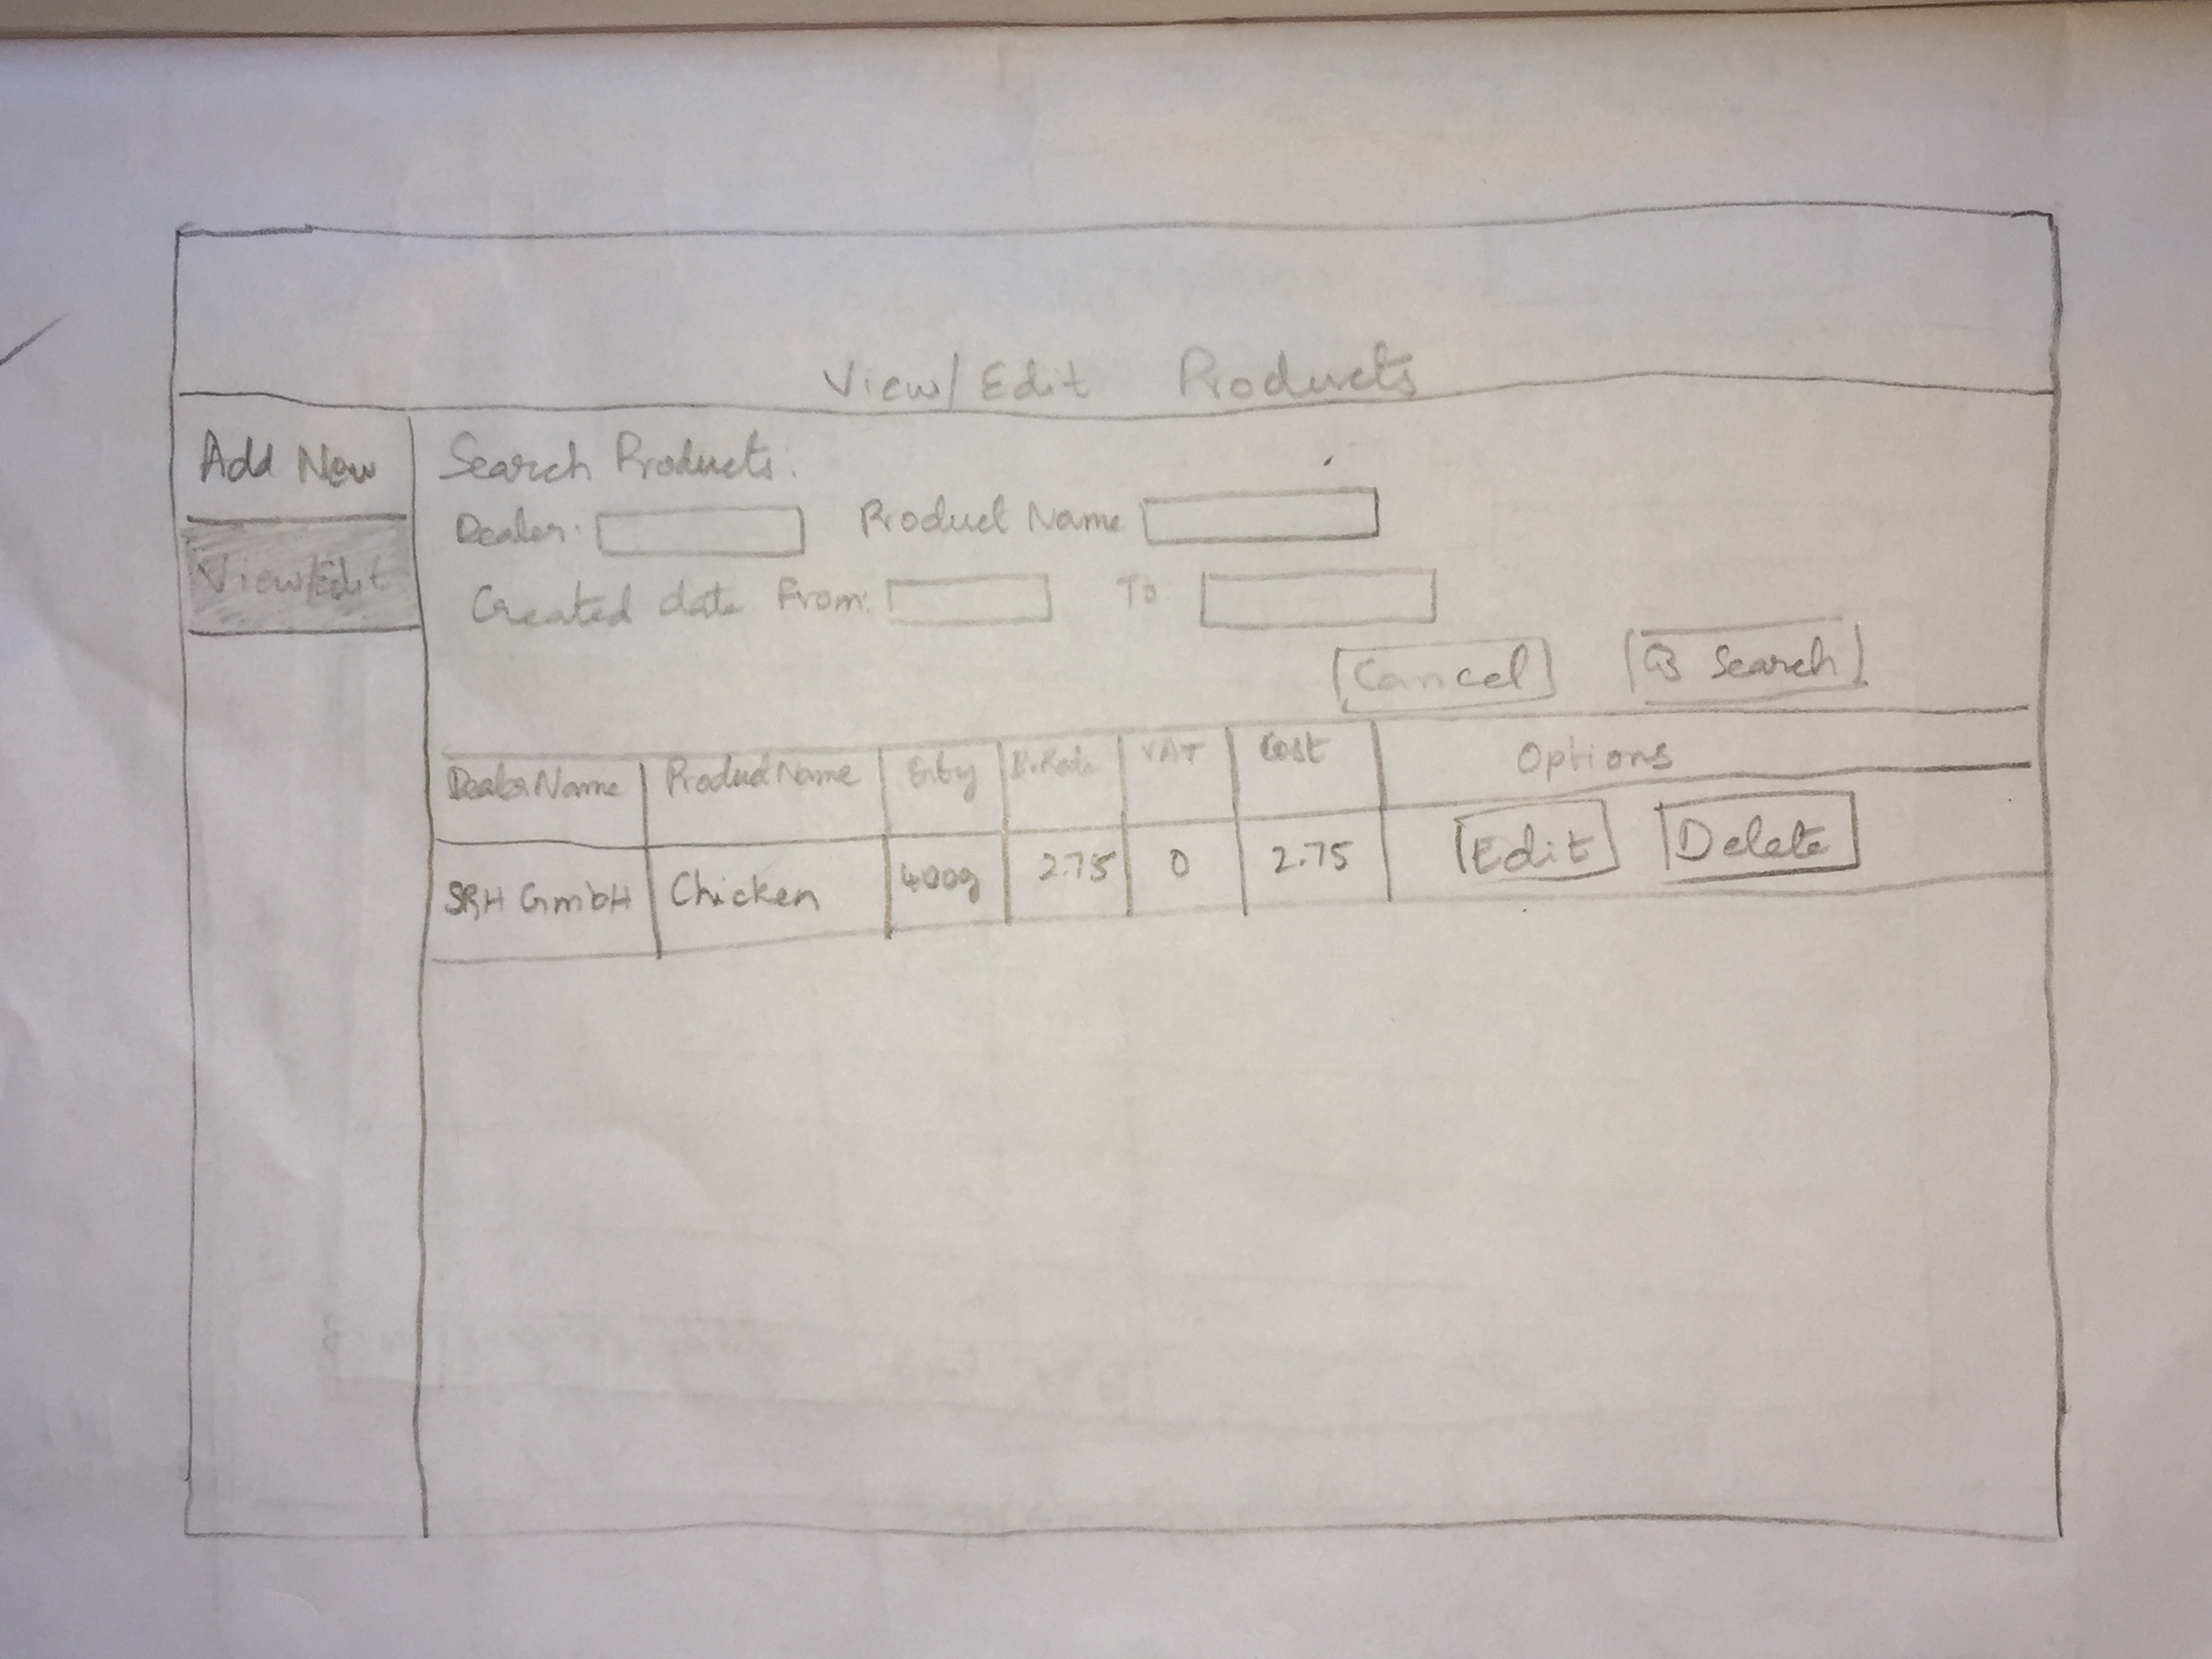 View/Edit Products
Add New
View/Edit
Search Products:
Dealer: Product Name
Created date From: To
Cancel Search
DealerName ProductName VAT Cost Options
SRH GmbH Chicken 400g 2.75 0 2.75 Edit Delete